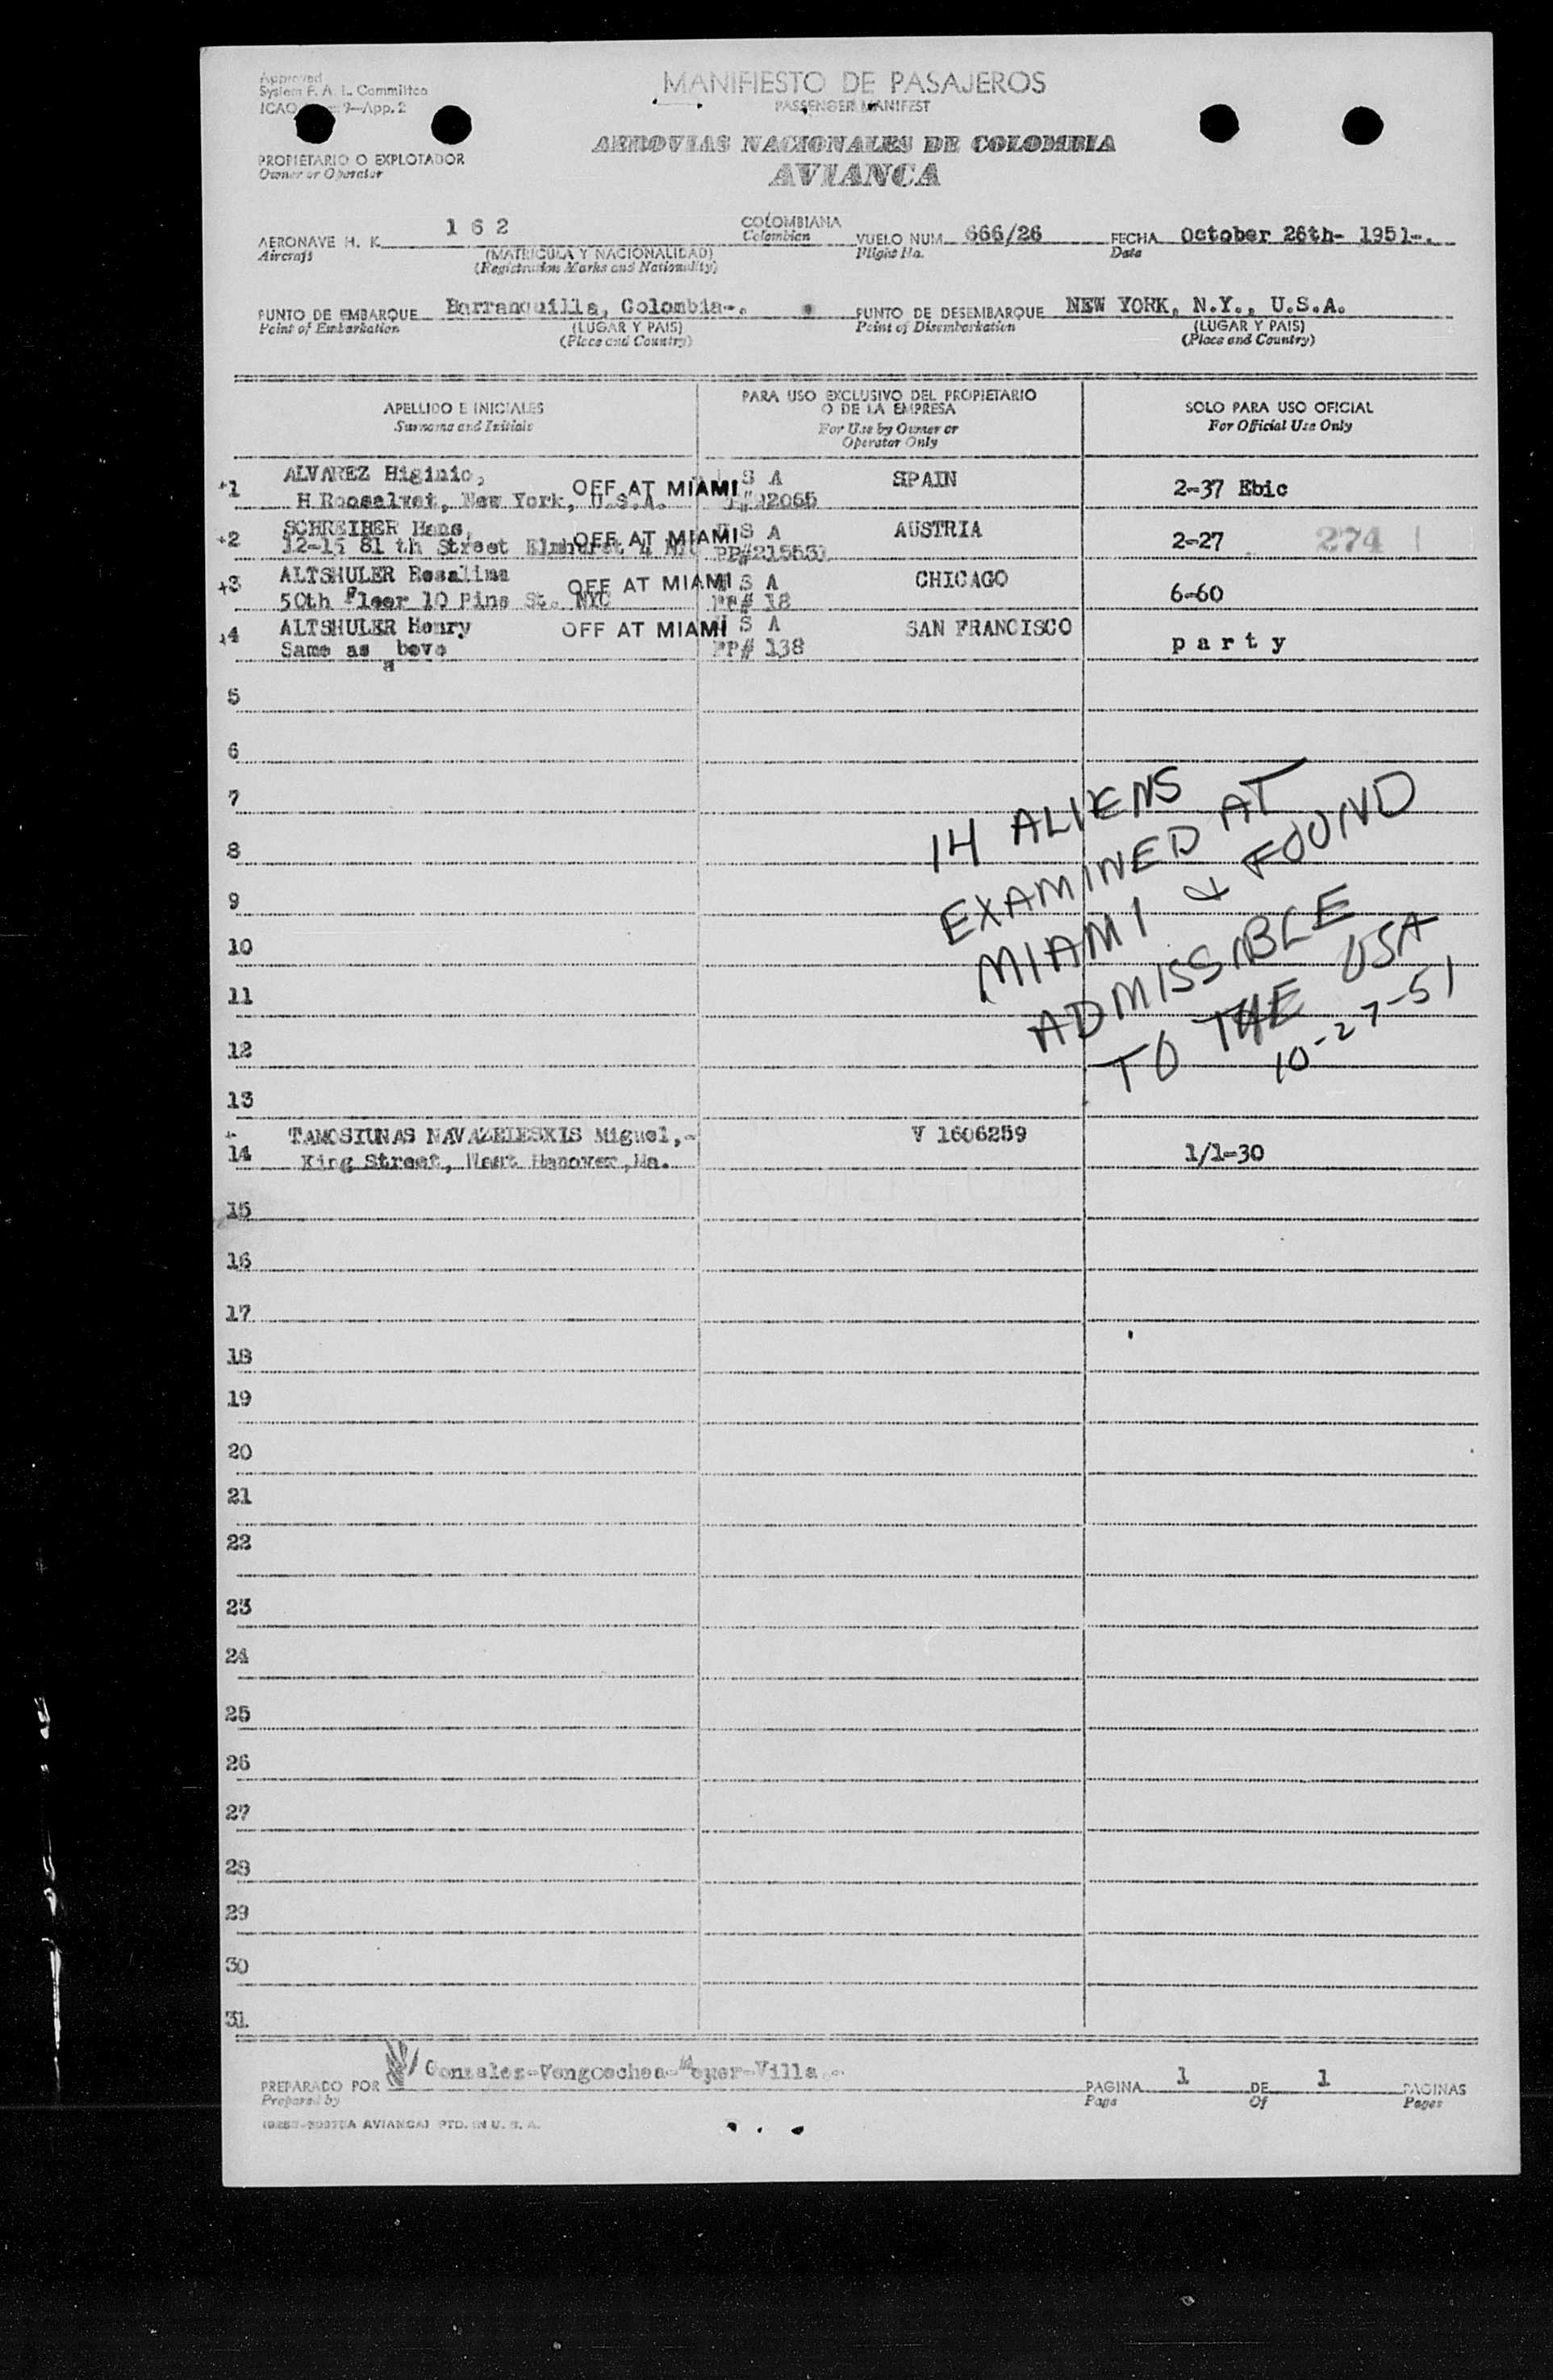 Approved
System F. A. L. Committee
ICAO 9—App. 2
MANIFIESTO DE PASAJEROS
PASSENGER MANIFEST
AEROVIAS NACIONALES DE COLOMBIA
AVIANCA
PROPIETARIO O EXPLOTADOR
Owner or Operator
AERONAVE H. K. 1 6 2 COLOMBIANA VUELO NUM. 666/26 FECHA October 26th- 1951-.
Aircraft (MATRICULA Y NACIONALIDAD) Colombian Flight No. Date
(Registration Marks and Nationality)
PUNTO DE EMBARQUE Barranquilla, Colombia-. PUNTO DE DESEMBARQUE NEW YORK, N.Y., U.S.A.
Point of Embarkation (LUGAR Y PAIS) Point of Disembarkation (LUGAR Y PAIS)
(Place and Country) (Place and Country)
APELLIDO E INICIALES PARA USO EXCLUSIVO DEL PROPIETARIO O DE LA EMPRESA SOLO PARA USO OFICIAL
Surname and Initials For Use by Owner or Operator Only For Official Use Only
+1 ALVAREZ Higinio, OFF AT MIAMI S A SPAIN 2-37 Ebic
H Rooselvet, New York, U.S.A.
+2 SCHREIBER Hans, OFF AT MIAMI S A AUSTRIA 2-27 274
12-15 81 th Street Elmhurst 4
+3 ALTSHULER Rosalima OFF AT MIAMI S A CHICAGO 6-60
50th Floor 10 Pine St. NYC PP# 18
+4 ALTSHULER Henry OFF AT MIAMI S A SAN FRANCISCO party
Same as above PP# 138
5
6
7
8
9
10
11
12
13
14 ALIENS
EXAMINED AT
MIAMI & FOUND
ADMISSIBLE
TO THE USA
10-27-51
+ TAMOSIUNAS Miguel,- V 1606259
14 King Street, West Hanover, Ma. 1/1-30
15
16
17
18
19
20
21
22
23
24
25
26
27
28
29
30
31.
PREPARADO POR PAGINA 1 DE 1 PAGINAS
Prepared by Page Of Pages
AVIANCA) PTD. IN U. S. A.